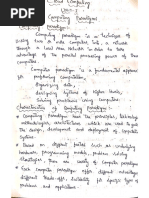 Cloud Computing
Unit-1
Computing Paradigms
Computing paradigm
Computing paradigm is a technique of
using two or more computer into a network
through a local Area network in order to take
advantage of the parallel processing power of two
computer.
Computer paradigm is a fundamental approach
for programming computation,
Organizing data,
designing systems of higher levels,
Solving problems using computers.
Characteristics of Computing paradigms:
Computing Paradigm has the principles,
methodologies, architectures which are used to guide
the design, development and deployment of computer
System.
There are different fields such as including
hardware, programming models, problem solving
strategies. There are variety of computer paradigm
Each computer paradigm offers different advantage
and trade offs, suitability for specific type of
problems and applications.